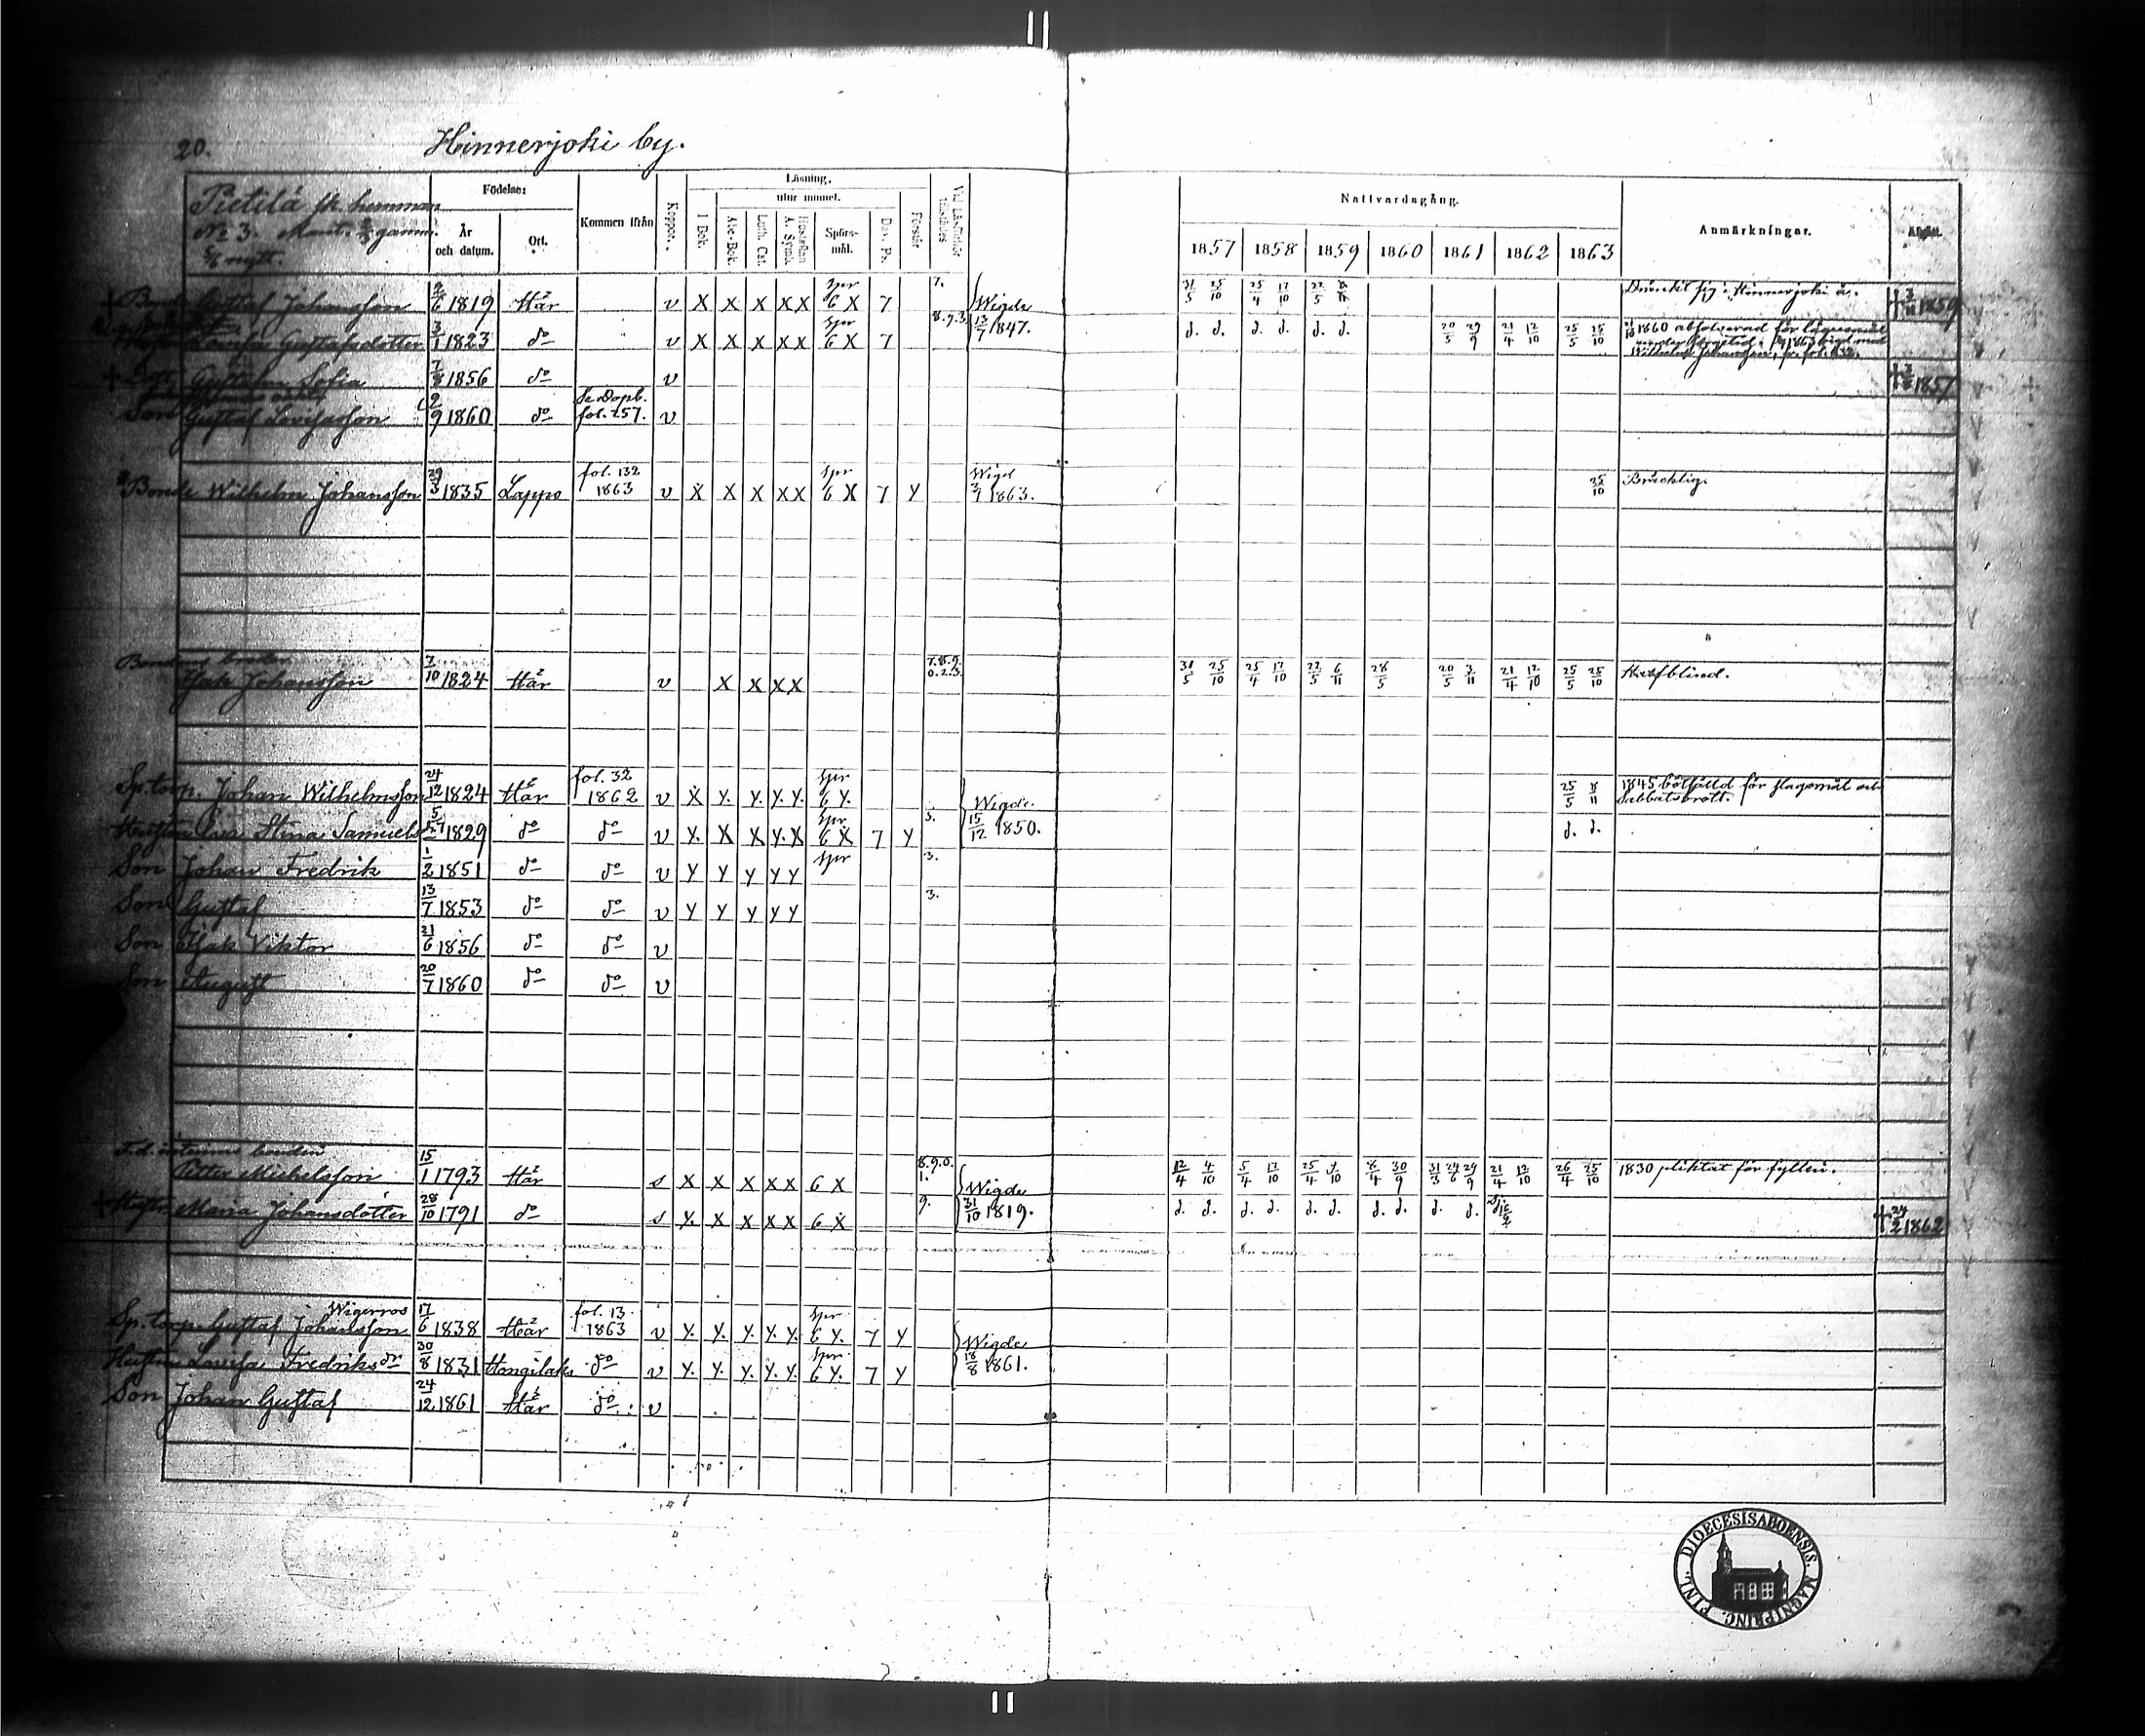 20.
Hinnerjoki by.
Pietilä sk. hemman
№ 3. Mant. gamm.
nytt.
Födelse:
År och datum.
Ort.
Kommen ifrån
Koppor.
Läsning.
utur minnet.
I Bok.
Abc-Bok.
Luth. Cat.
Hustaflan A. Symb.
Spörs-mål.
Dav. Ps.
Förstår
Nattvardsgång.
1857 1858 1859 1860 1861 1862 1863
Anmärkningar.
Afgått.
† Bond Gustaf Johansson 2/6 1819 Här v X X X X X spr 6 X 7 7. Wigde 31/5 25/10 25/4 17/10 22/5 Hinnerjoki å. † 1859
Lovisa Gustafsdotter 3/1 1823 do v X X X X X spr 6 X 7 8.9.3 13/7 1847. d. d. d. d. d. d. 20/5 29/9 21/4 12/10 25/5 25/10 1860 absolverad för lägersmål
† Sofia 7/8 1856 do v † 1857
Son Gustaf Lovisasson 2/9 1860 do Se Dopb. fol. 257. v
Bonde Wilhelm Johansson 29/3 1835 Lappo fol. 132 1863 v X X X X X spr 6 X 7 Y Wigd 1863. 25/10 Bräcklig.
Bondens broder
Isak Johansson 7/10 1824 Här v X X X X 7.8.9. 0.2.3. 31/5 25/10 25/4 17/10 22/5 6/11 28/5 20/5 3/11 21/4 12/10 25/5 25/10 Halfblind.
Sp. torp. Johan Wilhelmsson 24/12 1824 Här fol. 32 1862 v X Y. Y. Y. Y. spr 6 Y. Wigde. 25/5 8/11 1845 bötfälld för slagsmål och Sabbatsbrott.
Hustru Eva Stina Samuels 1829 do do v Y. X X Y. X spr 6 X 7 Y 3. 15/12 1850. d. d.
Son Johan Fredrik 1/2 1851 do do v Y Y Y Y Y spr 3.
Son Gustaf 13/7 1853 do do v Y Y Y Y Y 3.
Son Isak Viktor 21/6 1856 do do v
Son August 20/7 1860 do do v
F.d. bonden
Petter Michelsson 15/1 1793 Här s X X X X X 6 X 8.9.0. 1. Wigde 12/4 4/10 5/4 17/10 25/4 9/10 8/4 30/9 31/3 24/6 29/9 21/4 12/10 26/4 25/10 1830 pliktat för fylleri.
† Hustr. Maria Johansdotter 28/10 1791 do s Y. X X X X 6 X 9. 31/10 1819. d. d. d. d. d. d. d. d. d. d. † 24/2 1862
Wigerros
Sp. torp. Gustaf Johansson 17/6 1838 Här fol. 13. 1863 v Y. Y. Y. Y. Y. spr 6 Y. 7 Y Wigde
Hustru Lovisa Fredriksdr 30/8 1831 Hongilaks do v Y. Y. Y. Y. Y. spr 6 Y. 7 Y 18/8 1861.
Son Johan Gustaf 24/12 1861 Här do v
DIOECESIS ABOENSIS. MAGNI PRINC. FINL.